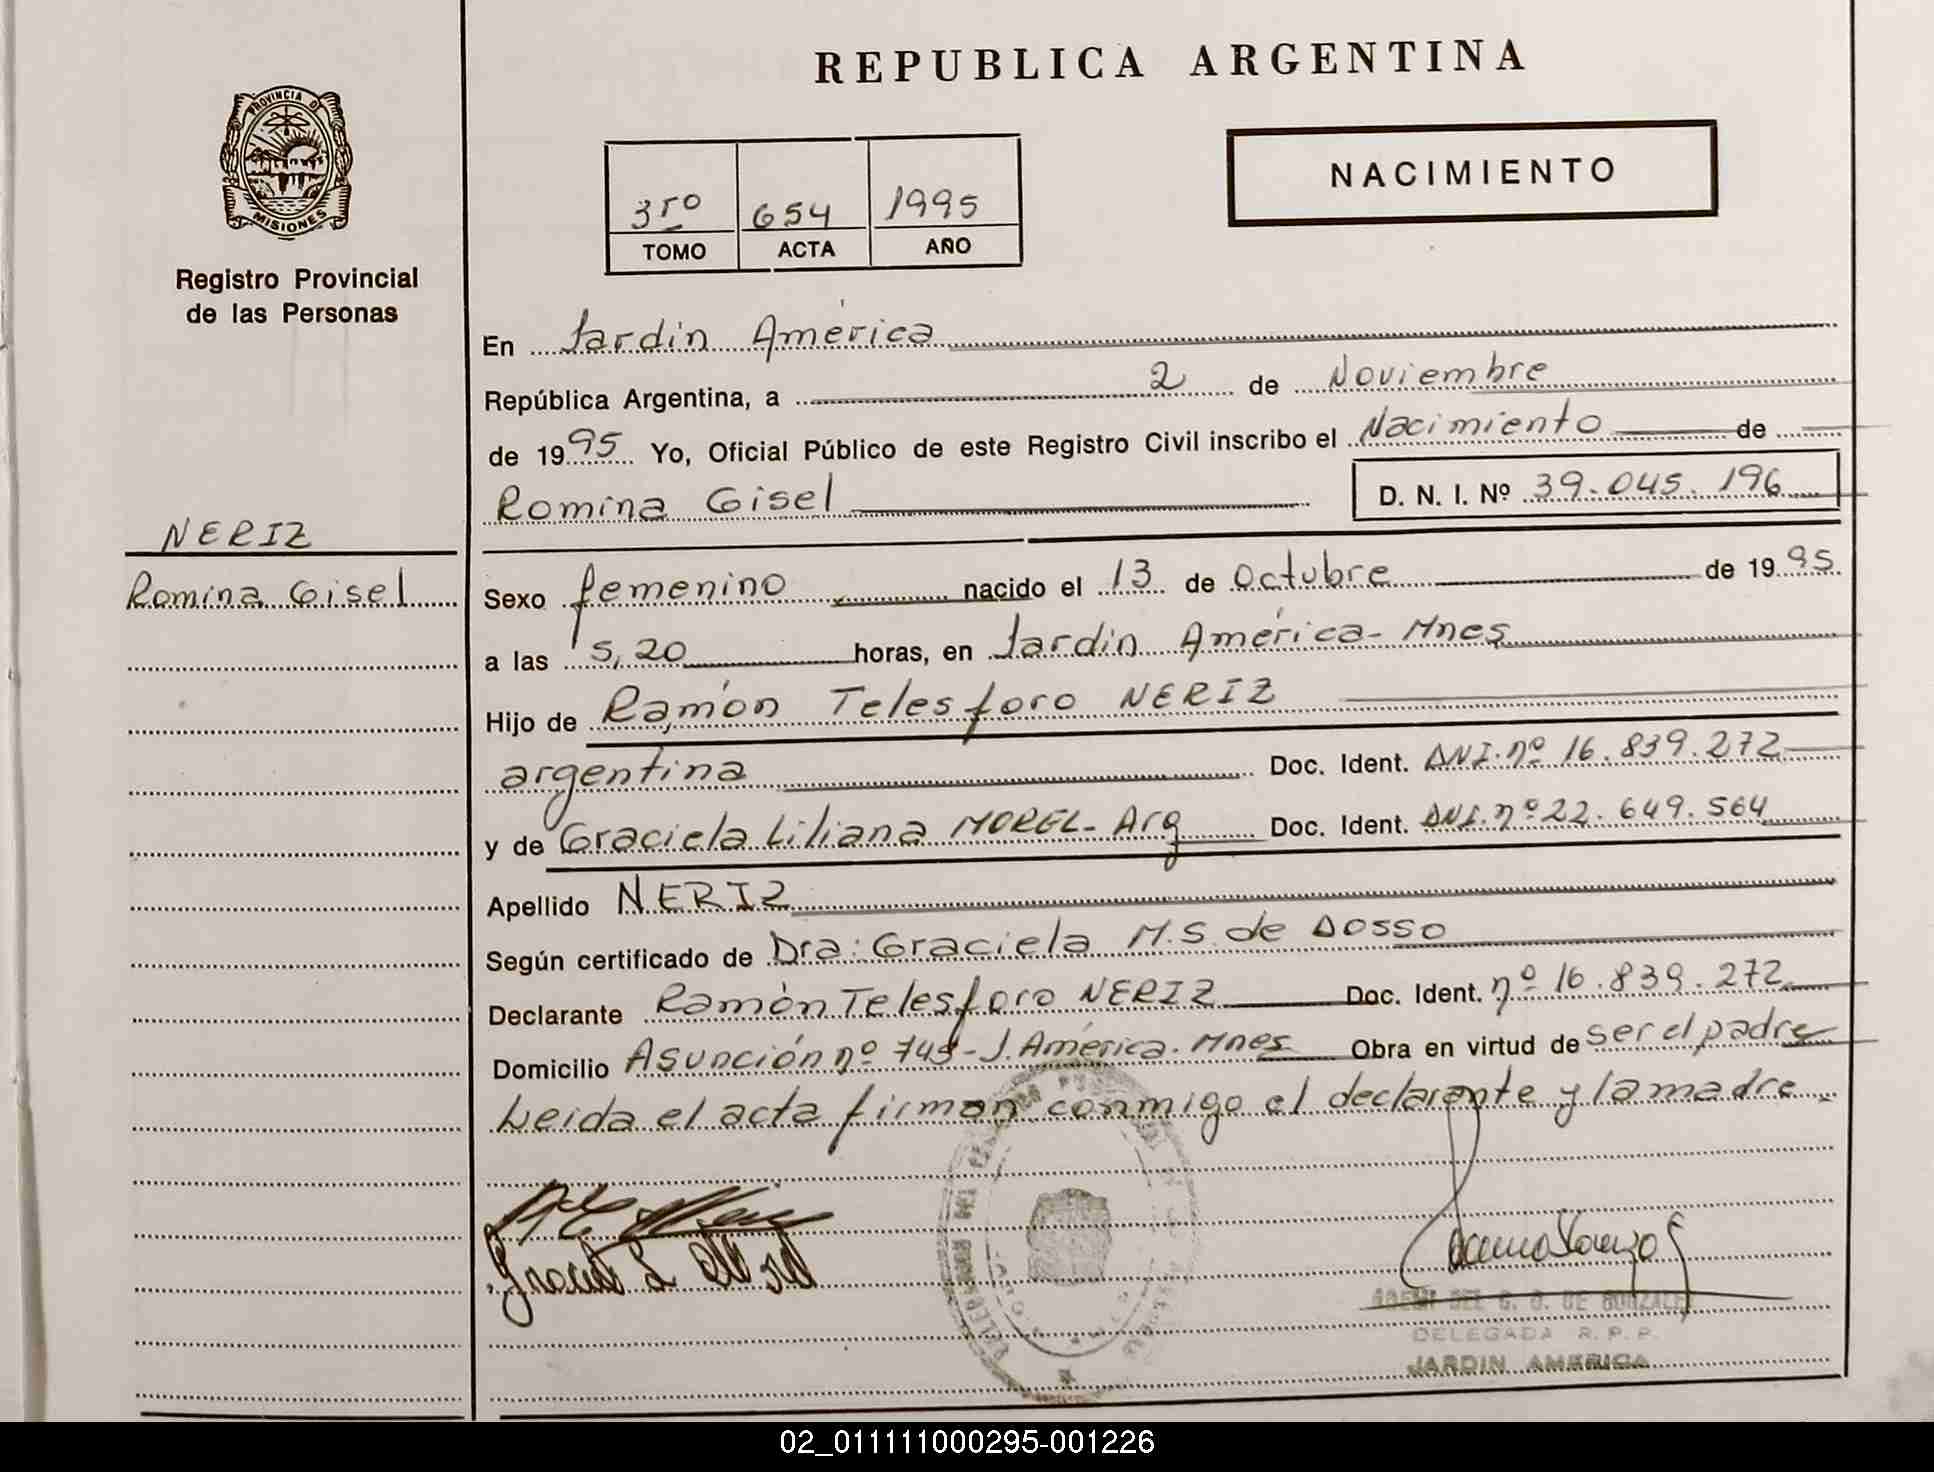 PROVINCIA D
MISIONES
Registro Provincial
de las Personas
NERIZ
Romina Gisel
REPUBLICA ARGENTINA
3ro 654 1995
TOMO ACTA AÑO
NACIMIENTO
En Jardin América
República Argentina, a 2 de Noviembre
de 1995 Yo, Oficial Público de este Registro Civil inscribo el Nacimiento de
Romina Gisel D. N. I. Nº 39.045.196
Sexo femenino nacido el 13 de Octubre de 1995.
a las 5,20 horas, en Jardin América- Mnes
Hijo de Ramón Telesforo NERIZ
argentina Doc. Ident. DNI.nº 16.839.272
y de Graciela Liliana MOREL- Arg Doc. Ident. DNI.nº 22.649.564
Apellido NERIZ
Según certificado de Dra: Graciela M.S. de Dosso
Declarante Ramón Telesforo NERIZ Doc. Ident. nº 16.839.272
Domicilio Asunción nº 745- J. América. Mnes Obra en virtud de ser el padre
Leida el acta firman conmigo el declarante y la madre.
DEL C. G. DE GONZALE
DELEGADA R. P. P.
JARDIN AMERICA
02_011111000295-001226